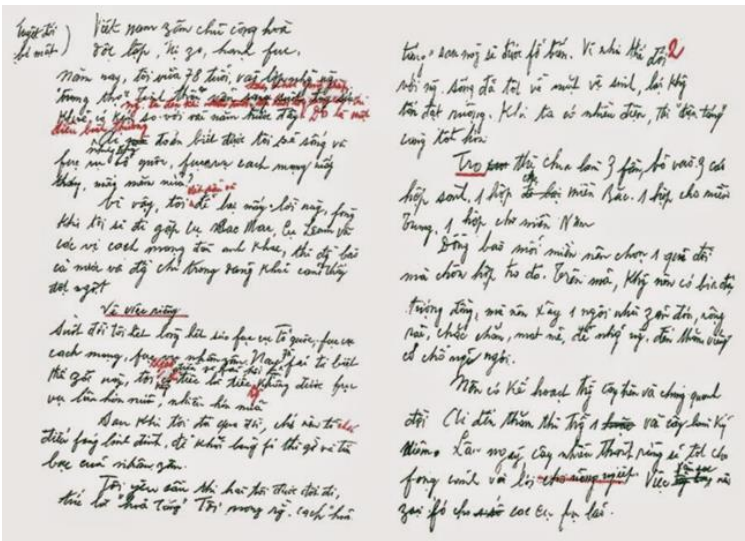 Tuyệt đối
bí mật)
Việt nam zân chủ cộng hoà
độc lập, tự zo, hạnh fúc.
Năm nay, tôi vừa 78 tuổi, vào lớp những người
"trung thọ". Tinh thần
Khoẻ so với vài năm trước đây. Đó là một
điều bình thường
Ai đoán biết được tôi sẽ sống và
fục vụ tổ quốc, fục vụ cách mạng mấy
tháng, mấy năm nữa?
Vì vậy, tôi để lại mấy lời này, fòng
khi tôi sẽ đi gặp cụ Các Mác, cụ Lênin và
các vị cách mạng đàn anh khác, thì đồng bào
cả nước và đồng chí trong đảng khỏi cảm thấy
đột ngột
Về việc riêng
Suốt đời tôi hết lòng hết sức fục vụ tổ quốc, fục vụ
cách mạng, fục vụ nhân zân. Nay fải từ biệt
thế zới này, tôi tiếc là tiếc không được fục
vụ lâu hơn nữa, nhiều hơn nữa
Sau khi tôi đã qua đời, chớ nên tổ chức
điếu fúng linh đình, để khỏi lãng fí thì zờ và tiền
bạc của nhân zân.
Tôi yêu cầu thi hài tôi được đốt đi,
tức là "hoả táng" Tôi mong rằng cách "hoả
2
táng" sau này sẽ được fổ biến. Vì như thế đối
với người sống đã tốt về mặt vệ sinh, lại không
tốn đất ruộng. Khi ta có nhiều điện, thì "điện táng"
càng tốt hơn.
Tro thì chia làm 3 fần, bỏ vào 3 cái
hộp sành, 1 hộp cho miền Bắc. 1 hộp cho miền
Trung, 1 hộp cho miền Nam
Đồng bào mỗi miền nên chọn 1 quả đồi
mà chôn hộp tro đó. Trên mả, không nên có bia đá,
tượng đồng, mà nên xây 1 ngôi nhà zản đơn, rộng
rãi, chắc chắn, mát mẻ, để những người đến thăm viếng
có chỗ nghỉ ngơi.
Nên có kế hoạch trồng cây trên và chung quanh
đồi Ai đến thăm thì trồng 1 vài cây làm kỷ
niệm. Lâu ngày cây nhiều thành rừng sẽ tốt cho
fong cảnh và lợi cho nông nghiệp. Việc săn sóc nên
zao fó cho các cụ fụ lão.